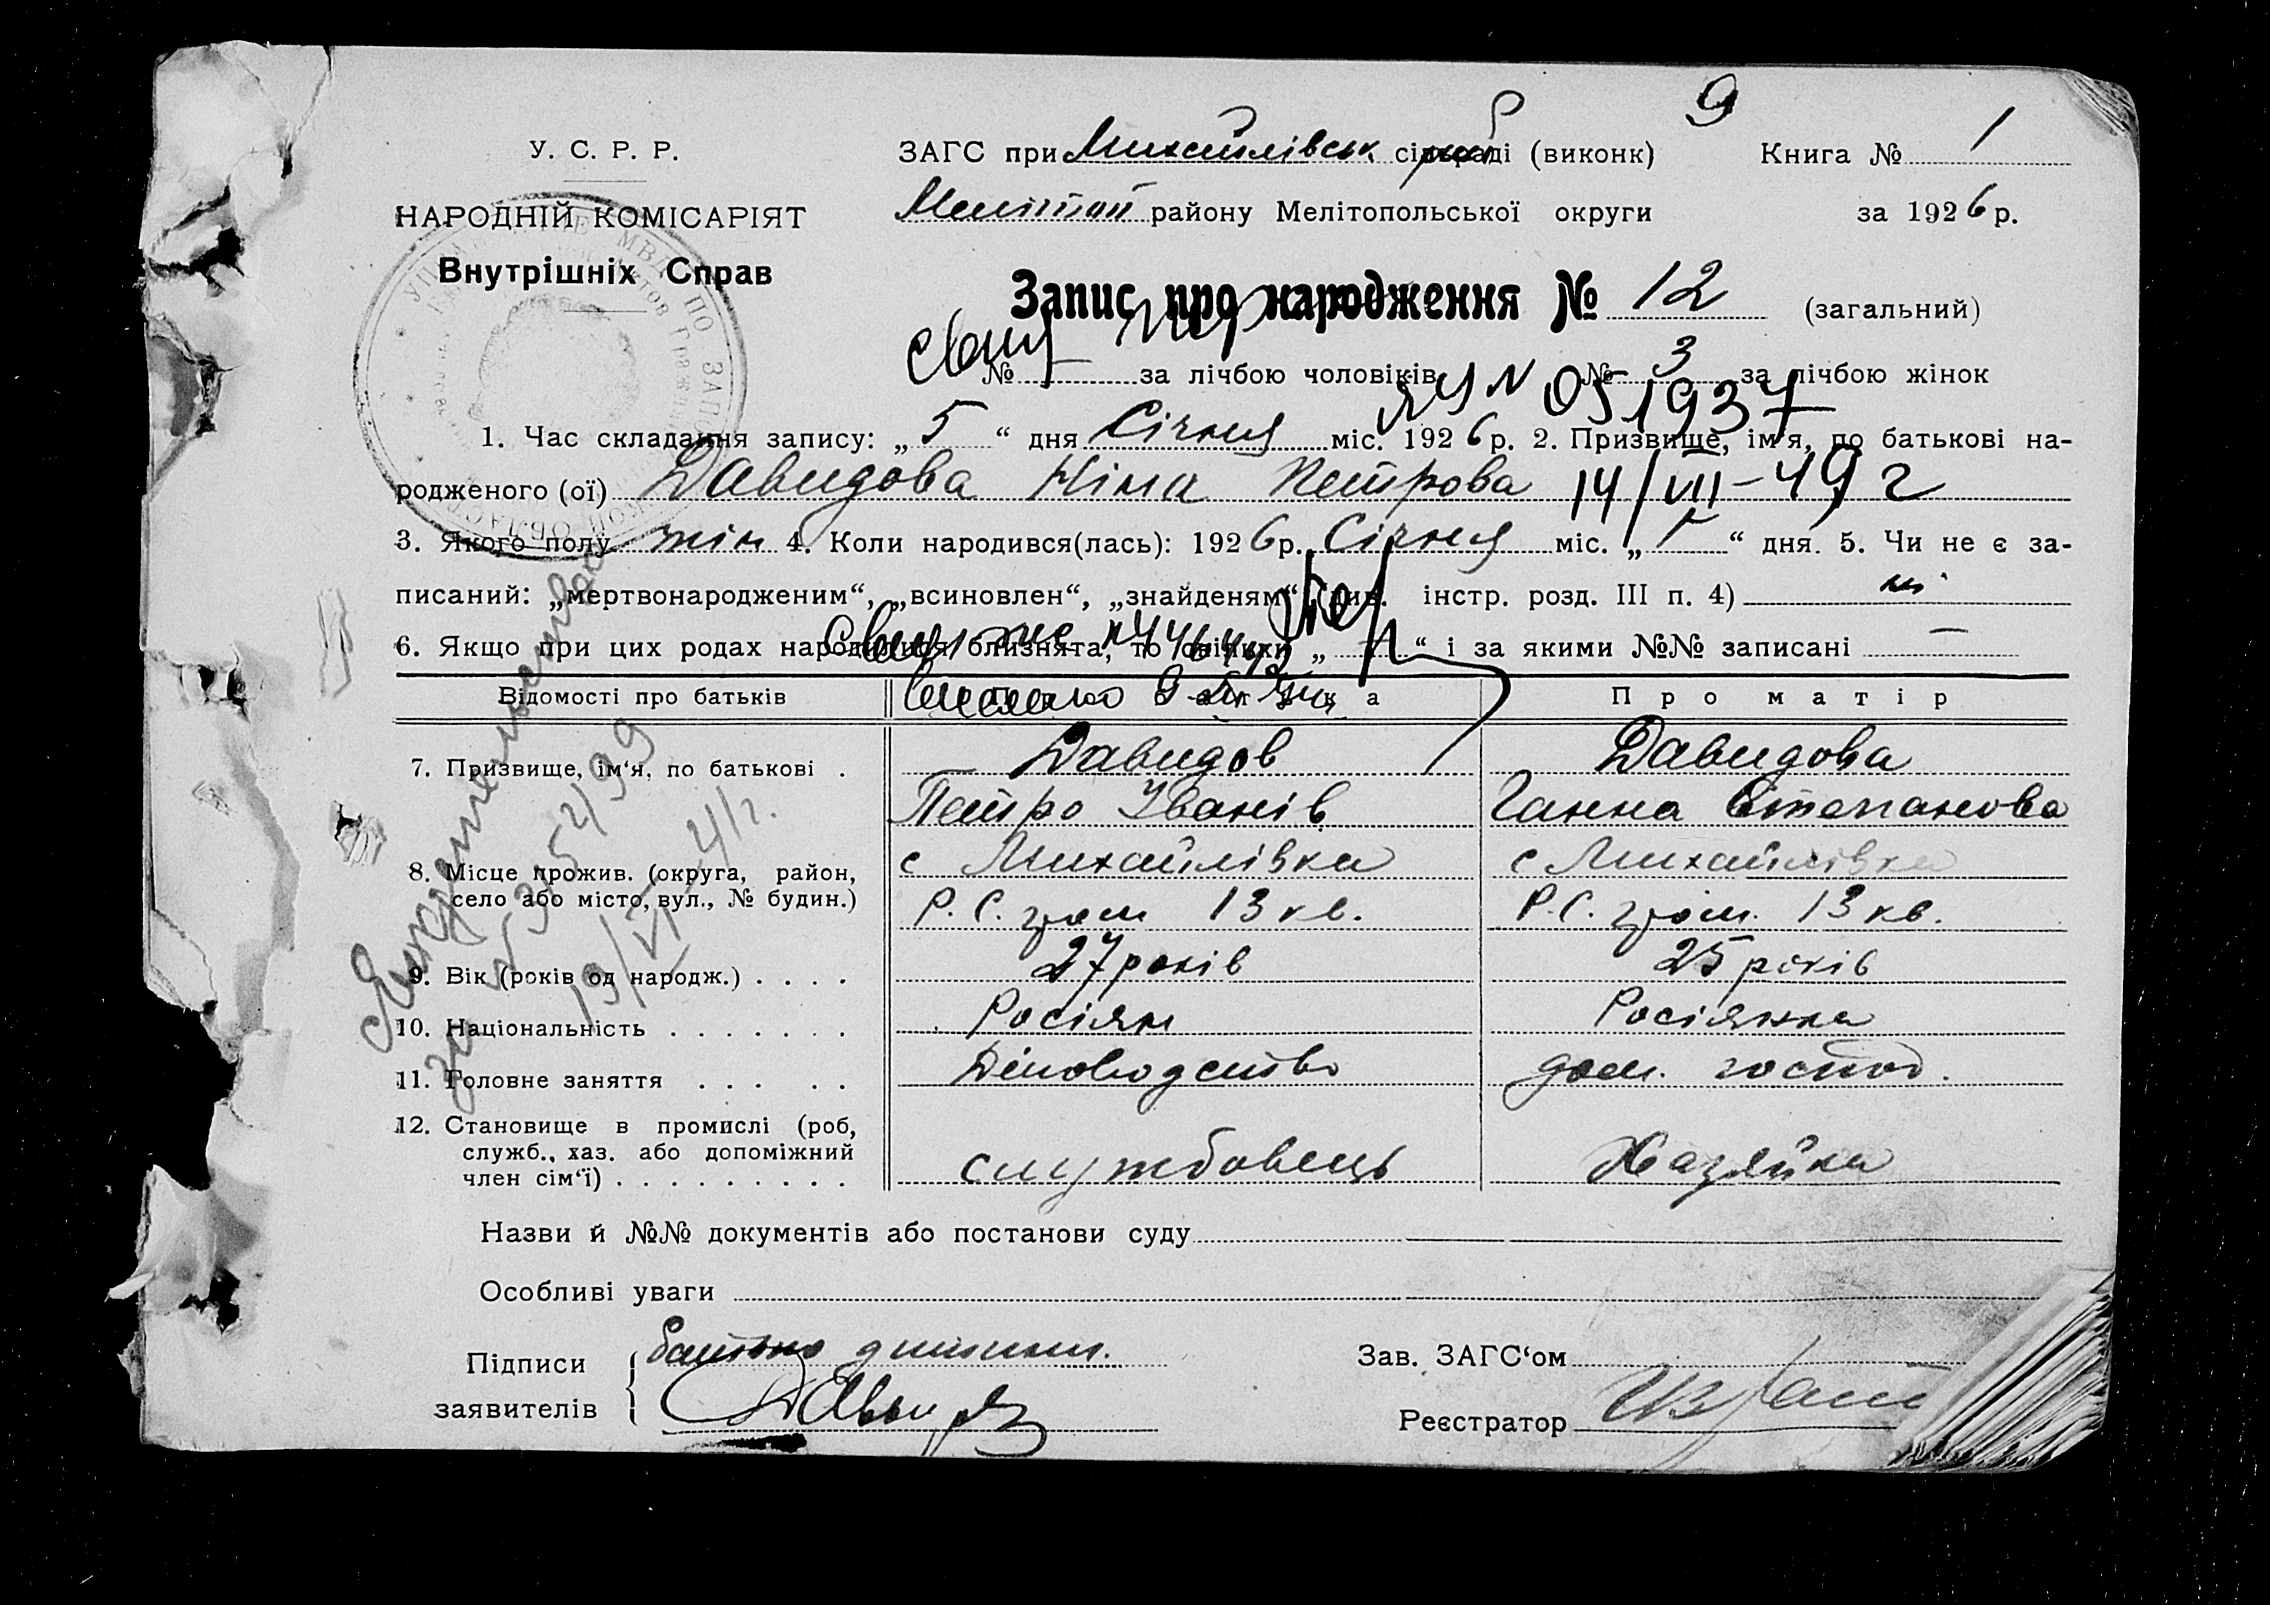 9
У. С. Р. Р.
ЗАГС при Михайлівськ сільраді (виконк) Книга № 1
НАРОДНІЙ КОМІСАРІЯТ
Меліттоп району Мелітопольської округи за 1926 р.
Внутрішніх Справ
Запис про народження № 12 (загальний)
№ за лічбою чоловіків № 3 за лічбою жінок
051937
1. Час складання запису: „5“ дня Січня міс. 1926 р. 2. Призвище, ім'я, по батькові на-
родженого (ої) Давидова Ніна Петрова 14/VII-49 г
3. Якого полу жін 4. Коли народився(лась): 1926 р. Січня міс. „1“ дня. 5. Чи не є за-
писаний: „мертвонародженим“, „всиновлен“, „знайденям“ (див. інстр. розд. III п. 4) ні
6. Якщо при цих родах народилися близнята, то скільки „—“ і за якими №№ записані —
Відомості про батьків Про батька Про матір
7. Призвище, ім'я, по батькові . Давидов Давидова
Петро Іванів Ганна Степанова
8. Місце прожив. (округа, район, с Михайлівка с Михайлівка
село або місто, вул., № будин.) Р. С. гром 13 кв. Р. С. гром. 13 кв.
9. Вік (років од народж.) . . . . 27 років 25 років
10. Національність . . . . . . . Росіян Росіянка
11. Головне заняття . . . . . Діловодство дом. господ.
12. Становище в промислі (роб,
служб., хаз. або допоміжний службовець Хазяйка
член сім'ї) . . . . . . . . .
Назви й №№ документів або постанови суду —
Особливі уваги
Підписи батько дитини. Зав. ЗАГС'ом
заявителів Реєстратор